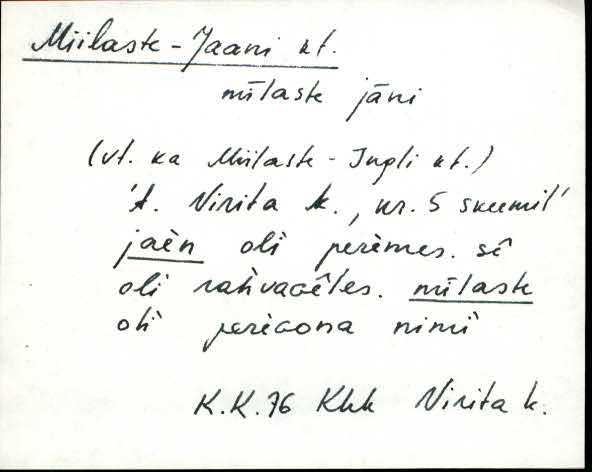 Miilaste-Jaani kt.
mīlaste jāni
(vt. ka Miilaste-Ingli kt.)
't. Virita k., nr. 5 skeemil'
jaèn oli perèmes. sē
oli rahvacēles. mīlaste
oli perècona nimi
K.K.76 Khk Virita k.